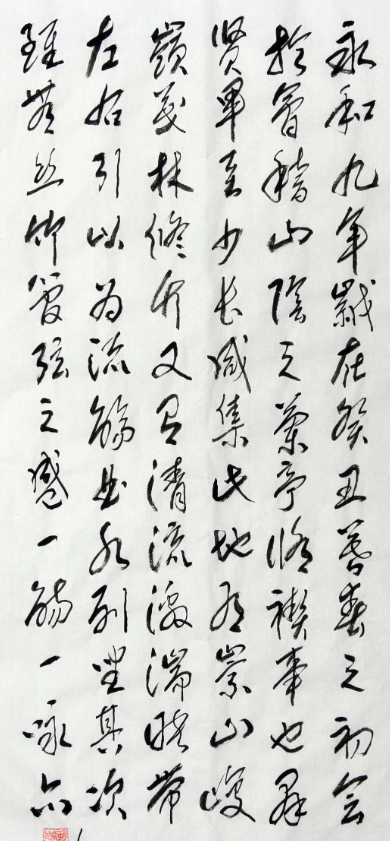 永和九年歲在癸丑暮春之初会
於會稽山陰之蘭亭脩禊事也羣
賢畢至少長咸集此地有崇山峻
嶺茂林修竹又有清流激湍映帶
左右引以為流觴曲水列坐其次
雖無絲竹管弦之盛一觴一詠亦